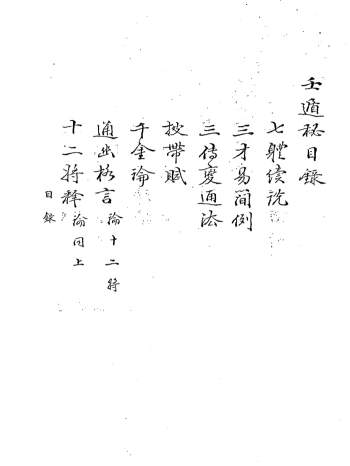 壬遁秘目錄
七體續說
三才易簡例
三傳變通法
投帶賦
千金論
通幽格言 論十二將
十二將釋 論同上
目錄